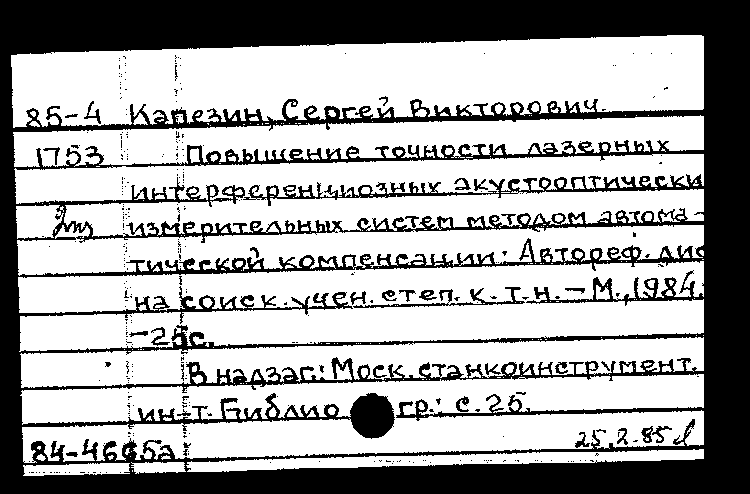 85-4 Капезин, Сергей Викторович.
1753 Повышение точности лазерных
интерференционных акустооптически
2нз измерительных систем методом автома-
тической компенсации: Автореф. дис
на соиск. учен. степ. к. т. н. – М., 1984.
– 25с.
В надзаг.: Моск. станкоинструмент.
ин-т. Библиогр.: с. 25.
84-46665а 25.2.85